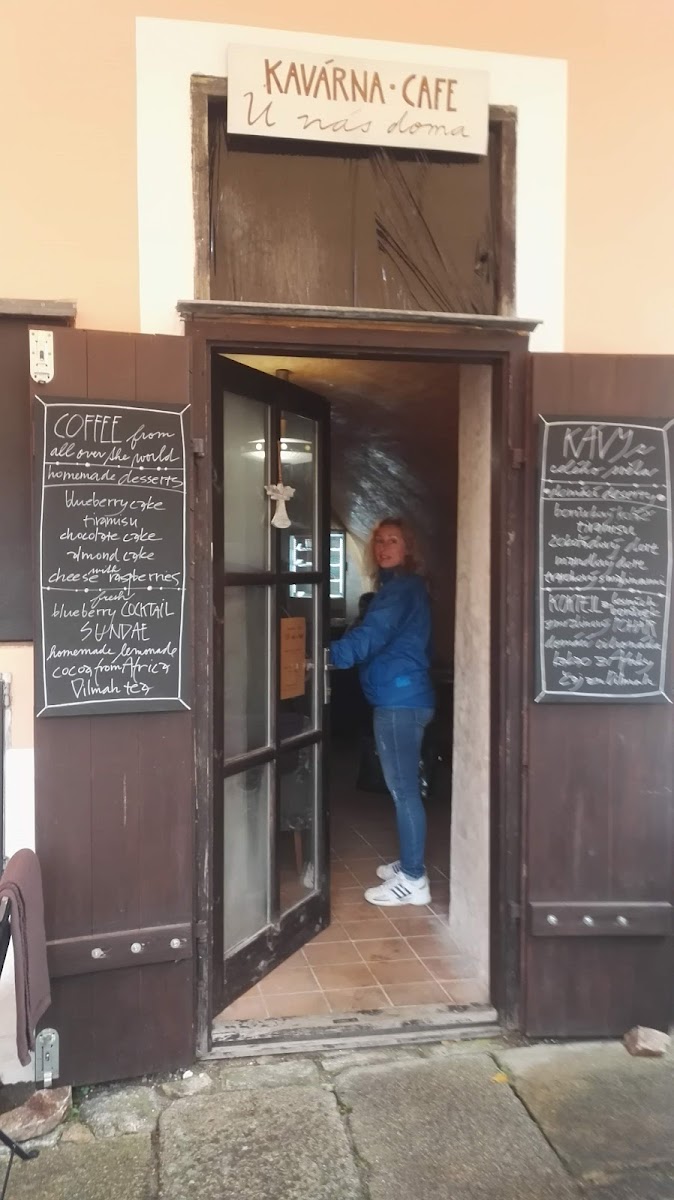 KAVÁRNA · CAFE
U nás doma
COFFEE from
all over the world
homemade desserts
blueberry cake
tiramisu
chocolate cake
almond cake
with
cheese raspberries
fresh
blueberry COCKTAIL
SUNDAE
homemade lemonade
cocoa from Africa
Dilmah tea
KÁVY z
celého světa
domácí dezerty
borůvkový koláč
tiramisu
čokoládový dort
mandlový dort
KOKTEJL
zmrzlinový
domácí
kakao z Afriky
čaj Dilmah